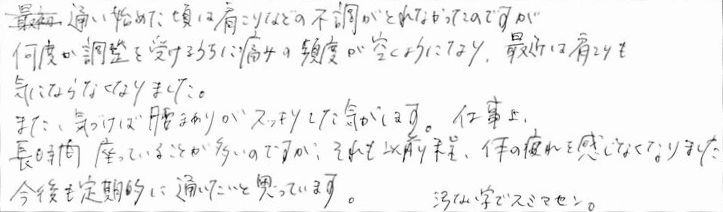 最初 通い始めた頃は肩こりなどの不調がとれなかったのですが
何度か調整を受けるうちに痛みの頻度が空くようになり、最近は肩こりも
気にならなくなりました。
また、気づけば腰まわりがスッキリした気がします。仕事上、
長時間座っていることが多いのですが、それも以前程、体の疲れを感じなくなりました
今後も定期的に通いたいと思っています。 汚ない字でスミマセン。